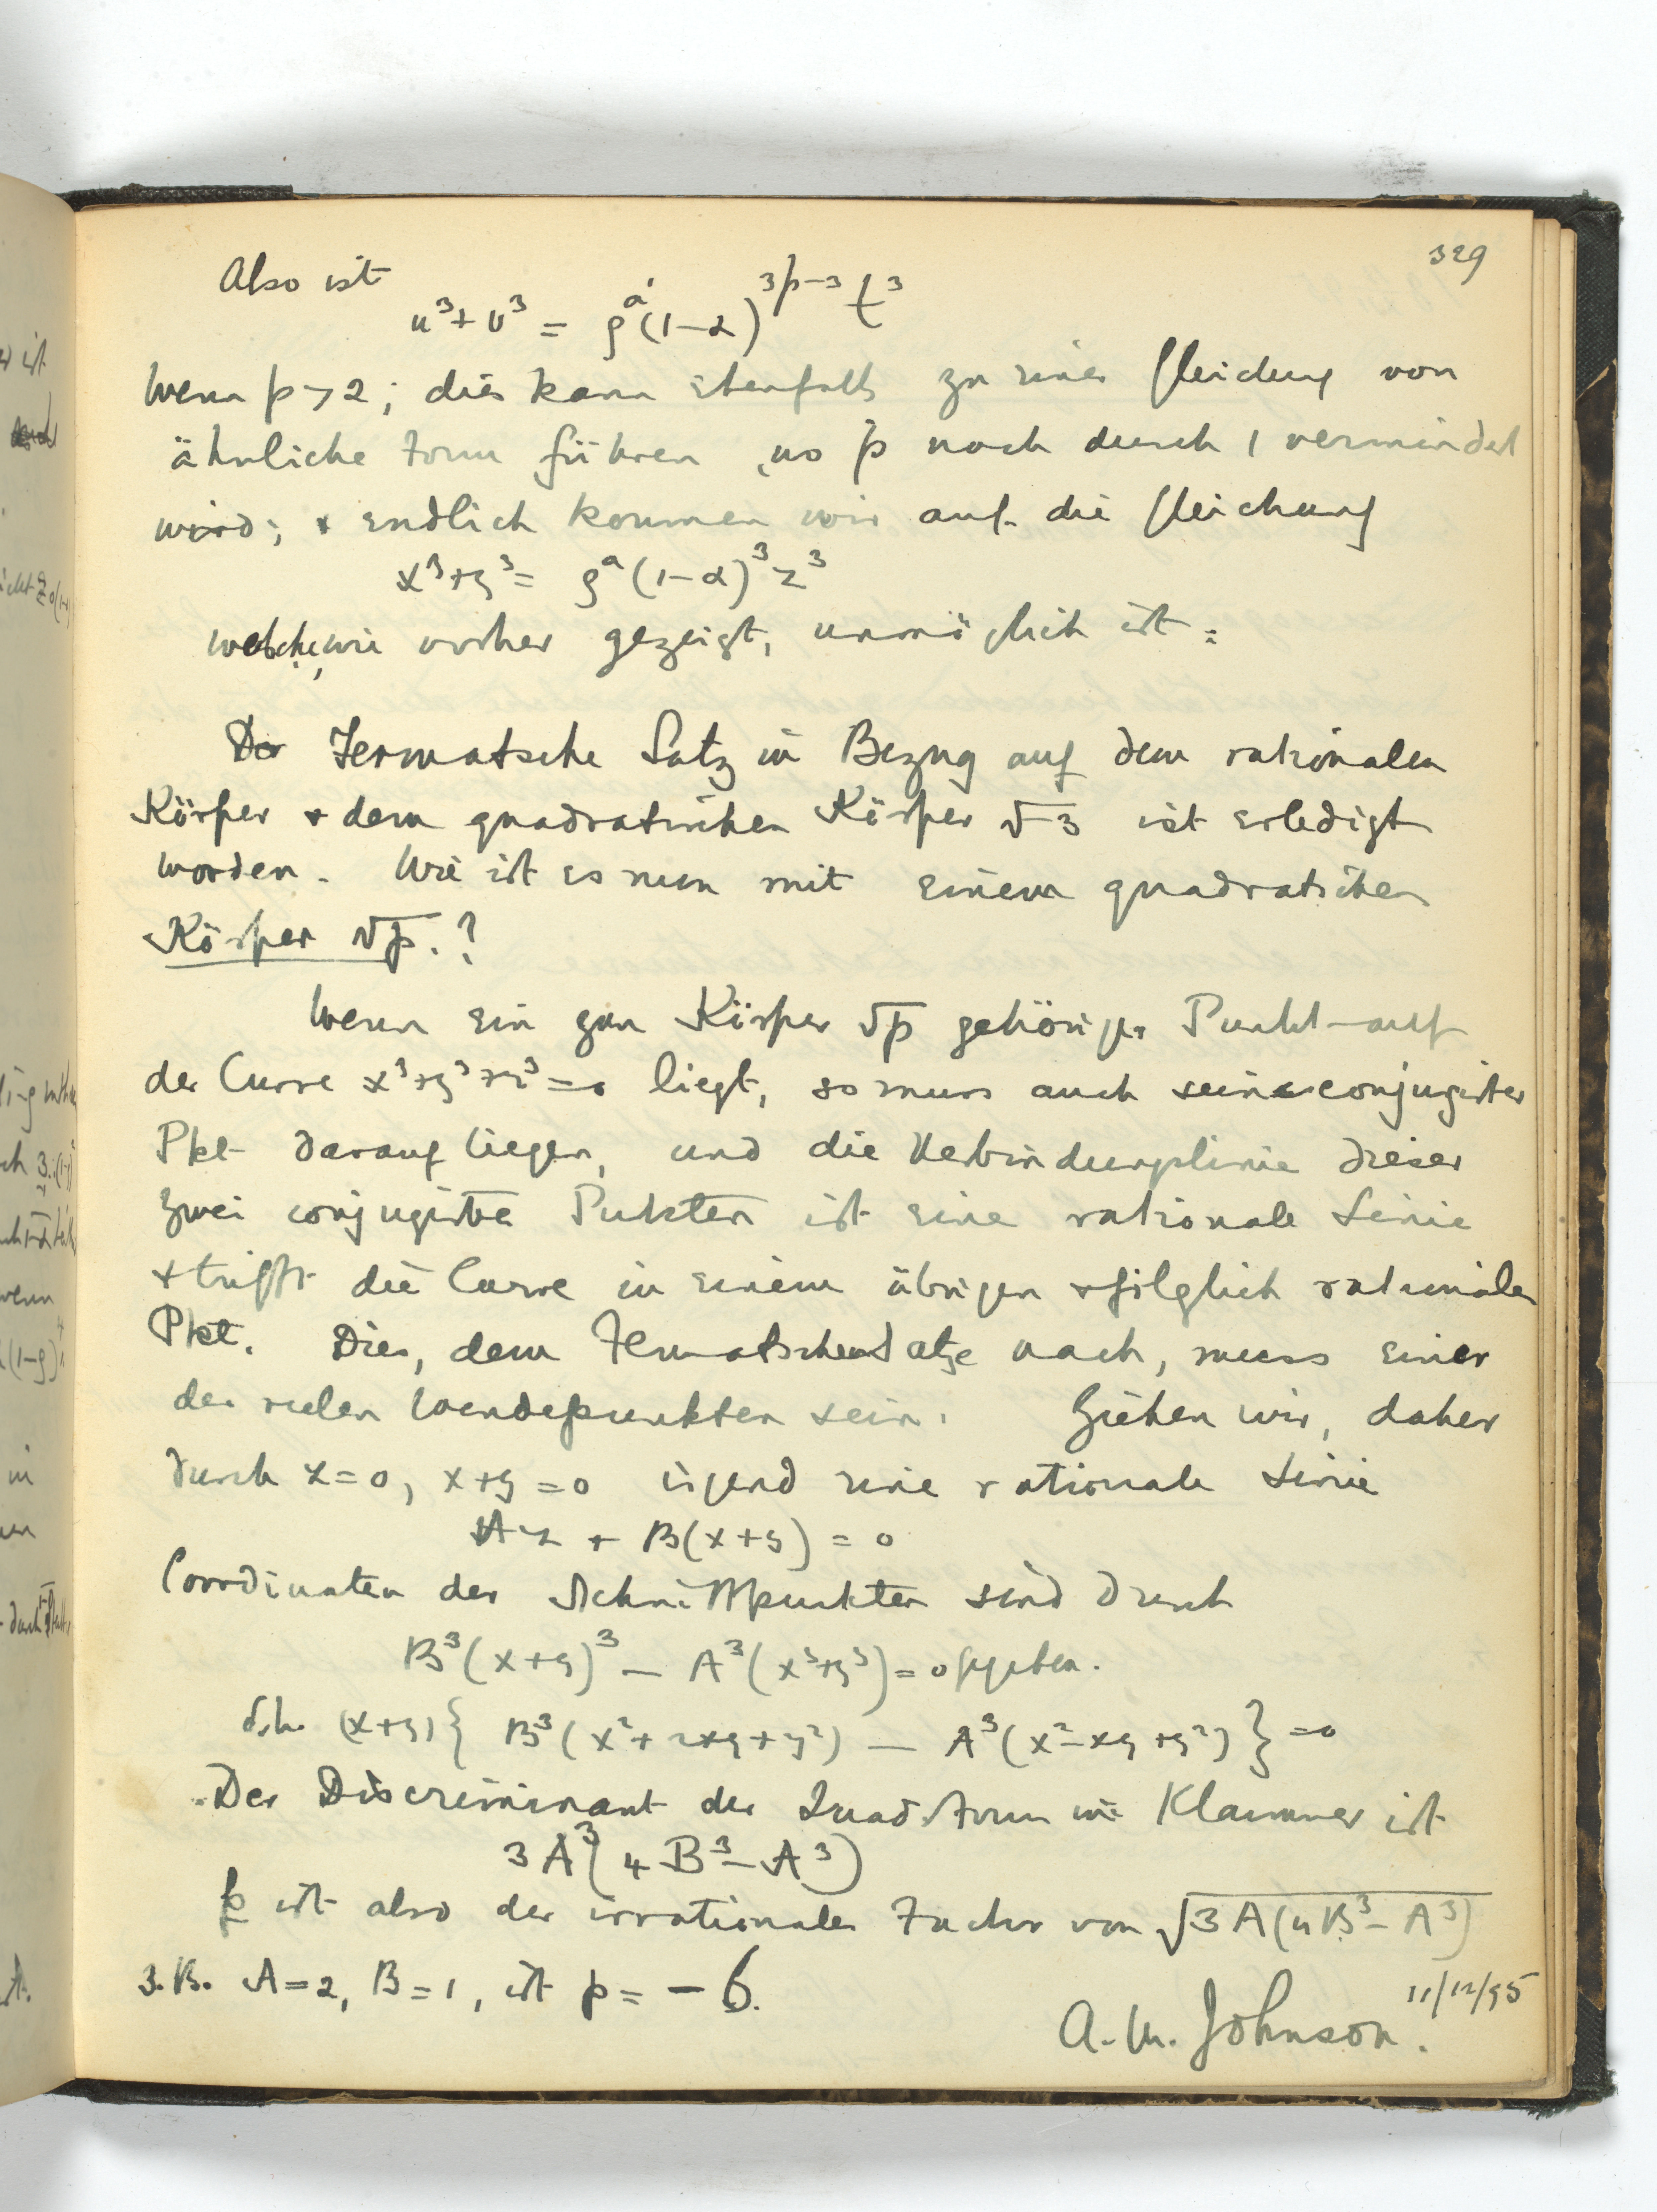 329
Also ist
u³ + v³ = ρ^a'(1-α)^{3p-3} t³
Wenn p > 2; dies kann ebenfalls zu einer Gleichung von
ähnliche Form führen, wo p noch durch 1 vermindert
wird; + endlich kommen wir auf die Gleichung
x³+y³ = ρ^a(1-α)³z³
welche, wie vorher gezeigt, unmöglich ist.
Der Fermatsche Satz in Bezug auf dem rationalen
Körper + dem quadratischen Körper √-3 ist erledigt
worden. Wie ist es nun mit einem quadratischen
Körper √p.?
Wenn ein zum Körper √p gehöriger Punkt auf
der Curve x³+y³+z³=0 liegt, so muss auch sein conjugirter
Pkt darauf liegen, und die Verbindungslinie dieser
zwei conjugirte Pukten ist eine rationale Linie
+ trifft die Curve in einem übrigen + folglich rationalen
Pkt. Dies, dem Fermatschen Satze nach, muss einer
der reelen Wendepunkten sein. Ziehen wir, daher
durch z=0, x+y=0 irgend eine rationale Linie
Az + B(x+y) = 0
Coordinaten der Schnittpunkten sind durch
B³(x+y)³ - A³(x³+y³) = 0 gegeben.
d.h. (x+y){ B³(x²+2xy+y²) - A³(x²-xy+y²)} = 0
Der Discriminant der Quad. Form in Klammer ist
3A³(4B³-A³)
p ist also der irrationale Factor von √3A(4B³-A³)
z.B. A=2, B=1, ist p = -6.
11/12/95
A. M. Johnson.